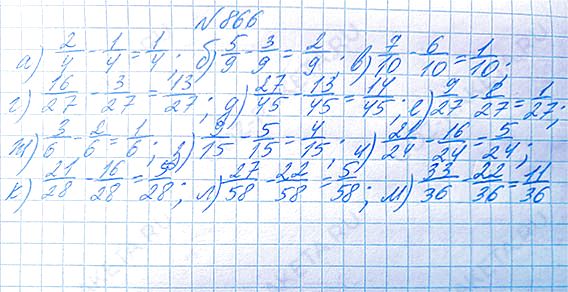 №866
а) 2/4 - 1/4 = 1/4; б) 5/9 - 3/9 = 2/9; в) 7/10 - 6/10 = 1/10;
г) 16/27 - 3/27 = 13/27; д) 27/45 - 13/45 = 14/45; е) 9/27 - 8/27 = 1/27;
ж) 3/6 - 2/6 = 1/6; з) 9/15 - 5/15 = 4/15; и) 21/24 - 16/24 = 5/24;
к) 21/28 - 16/28 = 5/28; л) 27/58 - 22/58 = 5/58; м) 33/36 - 22/36 = 11/36